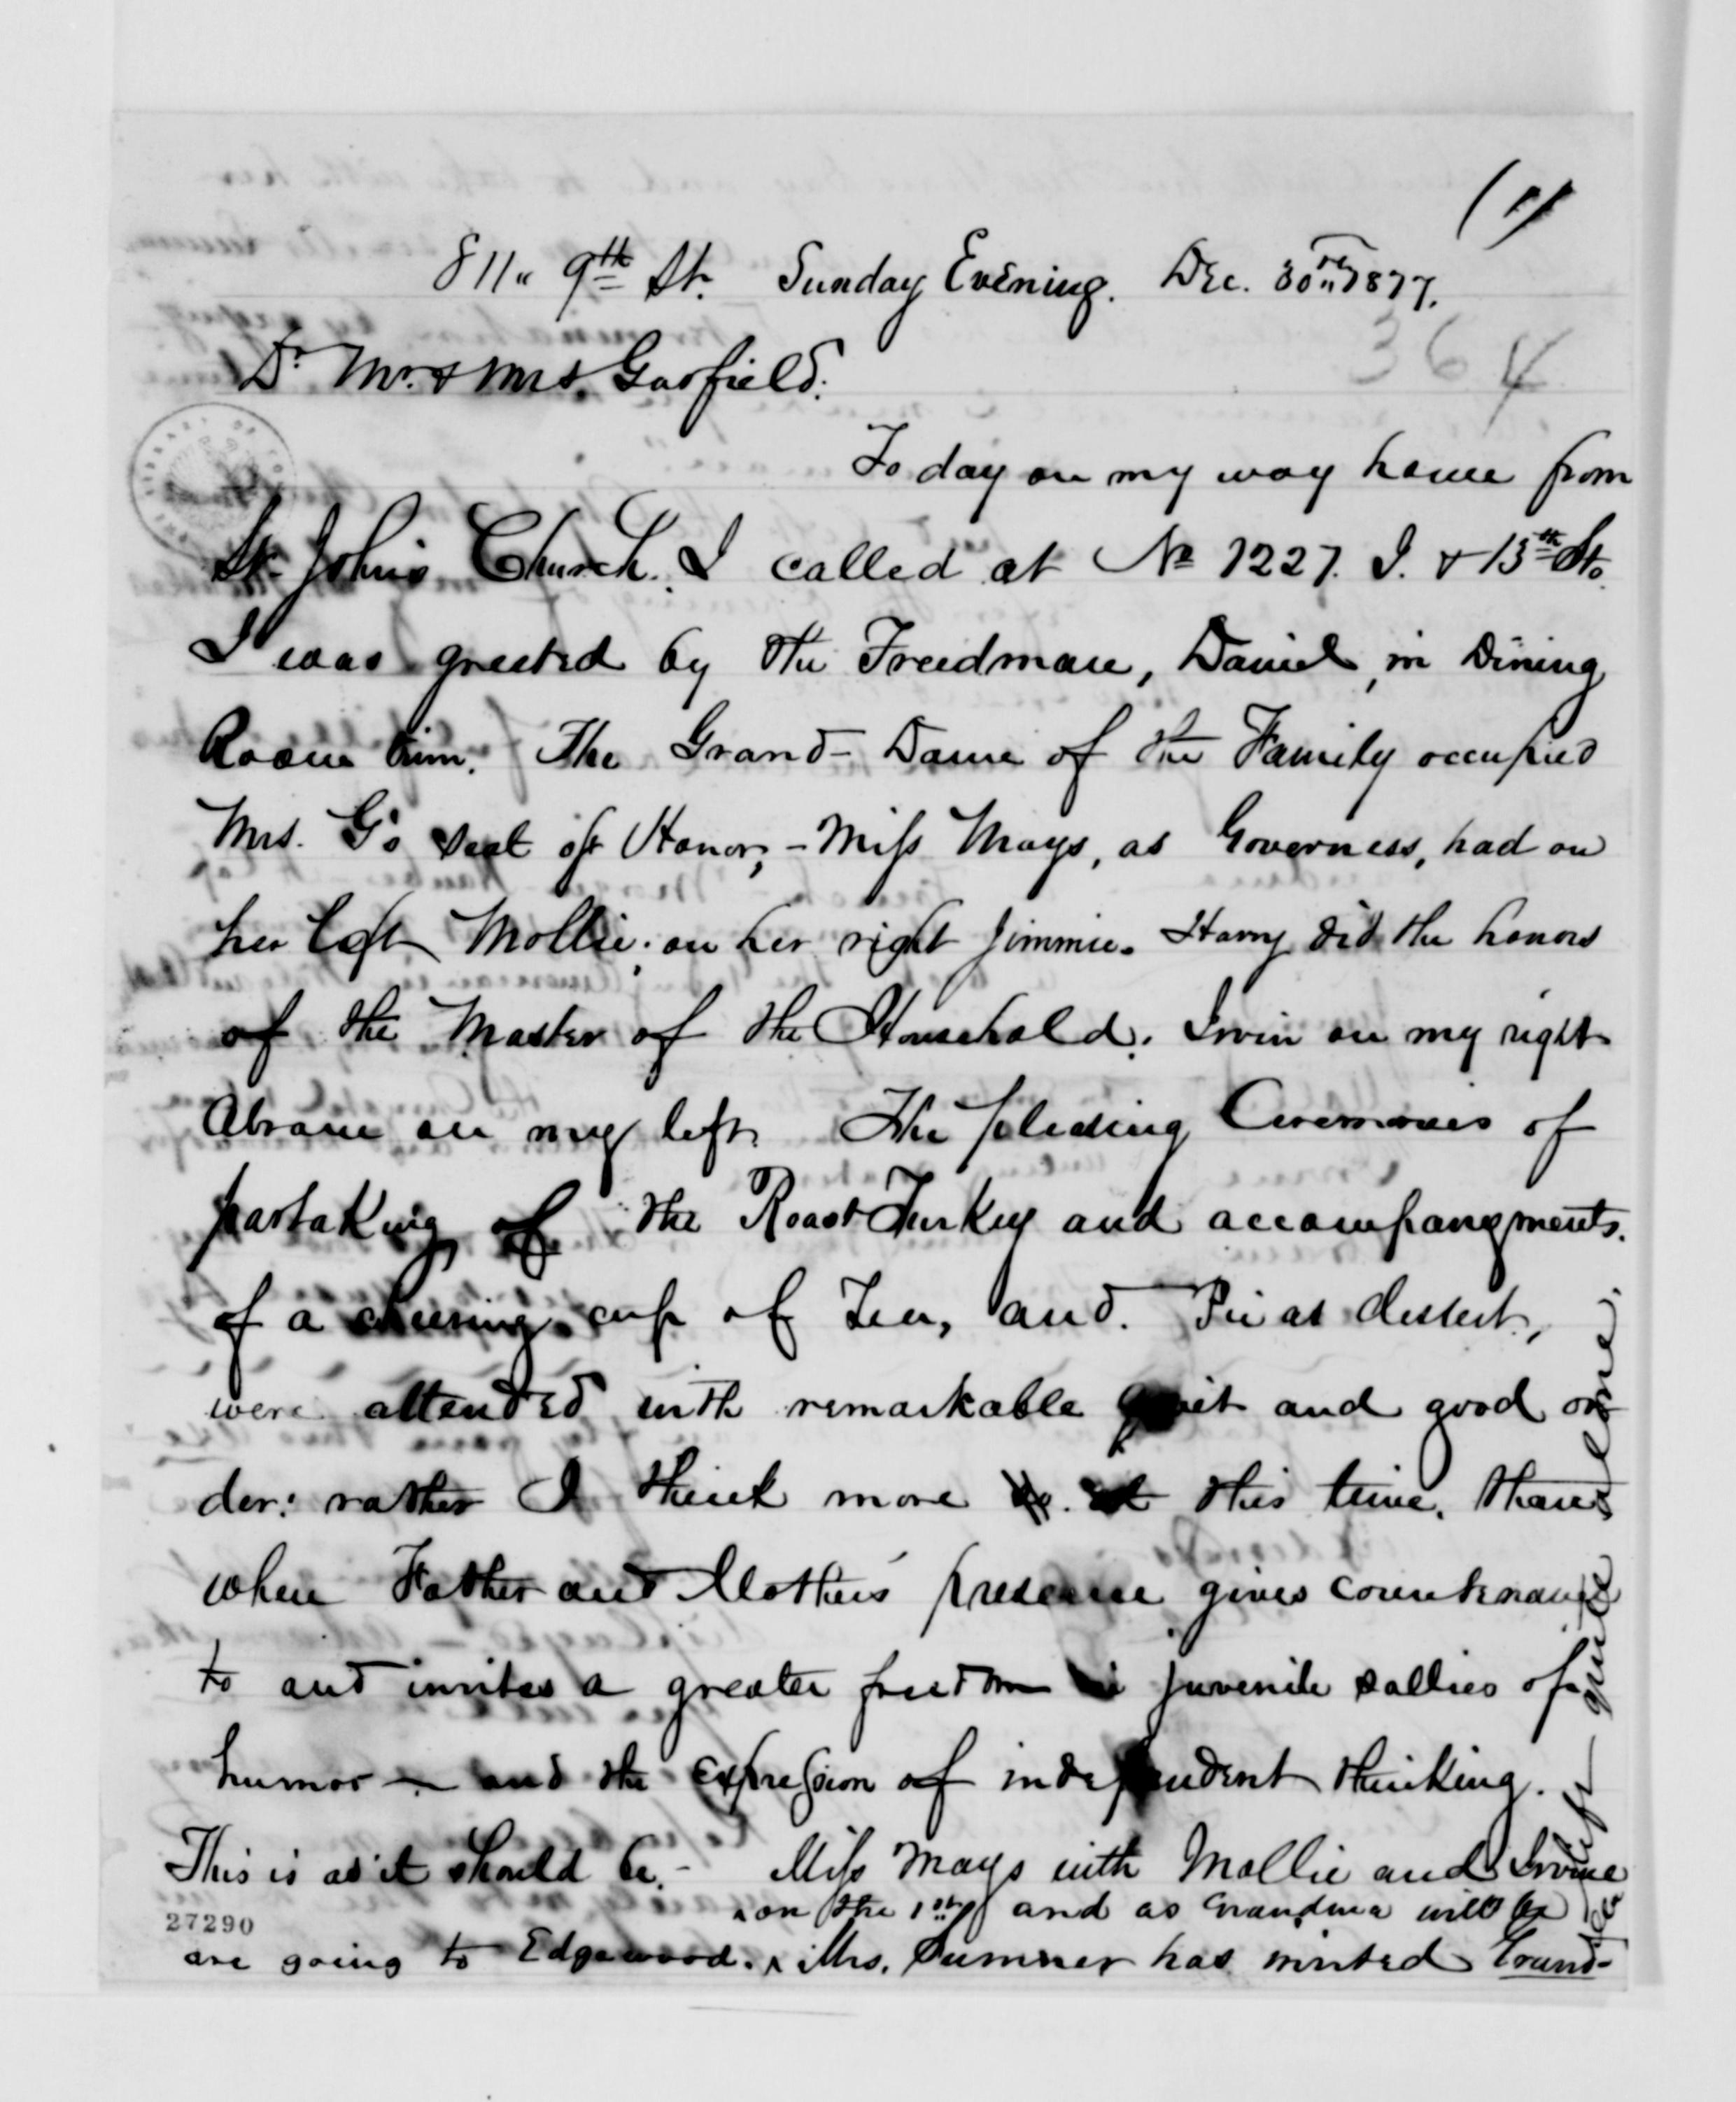 (1)
811 " 9th St. Sunday Evening. Dec. 30th 1877.
364
Dr Mr. & Mrs. Garfield.
To day on my way home from
St. John's Church. I called at No 1227. I. & 13th Sts.
I was greeted by the Freedman, Daniel, in Dining
Room trim. The Grand-Dame of the Family occupied
Mrs. G's seat of Honor, - Miss Mays, as Governess, had on
her left Mollie; on her right Jimmie. Harry did the honors
of the Master of the Household. Irvin on my right
Abram on my left. The pleasing Ceremonies of
partaking of the Roast Turkey and accompanyments.
of a cheering cup of Tea, and. Pie as dessert,
were attended with remarkable quiet and good or
der: rather I think more so. at this time. than
when Father and Mother's presence gives countenance
to and invites a greater freedom in juvenile sallies of
humor - and the expression of independent thinking.
This is as it should be. - Miss Mays with Mollie and Irvine
on the 1st and as Grandma will be
are going to Edgewood. ^ Mrs. Sumner has invited Grand-
left quite alone,
27290